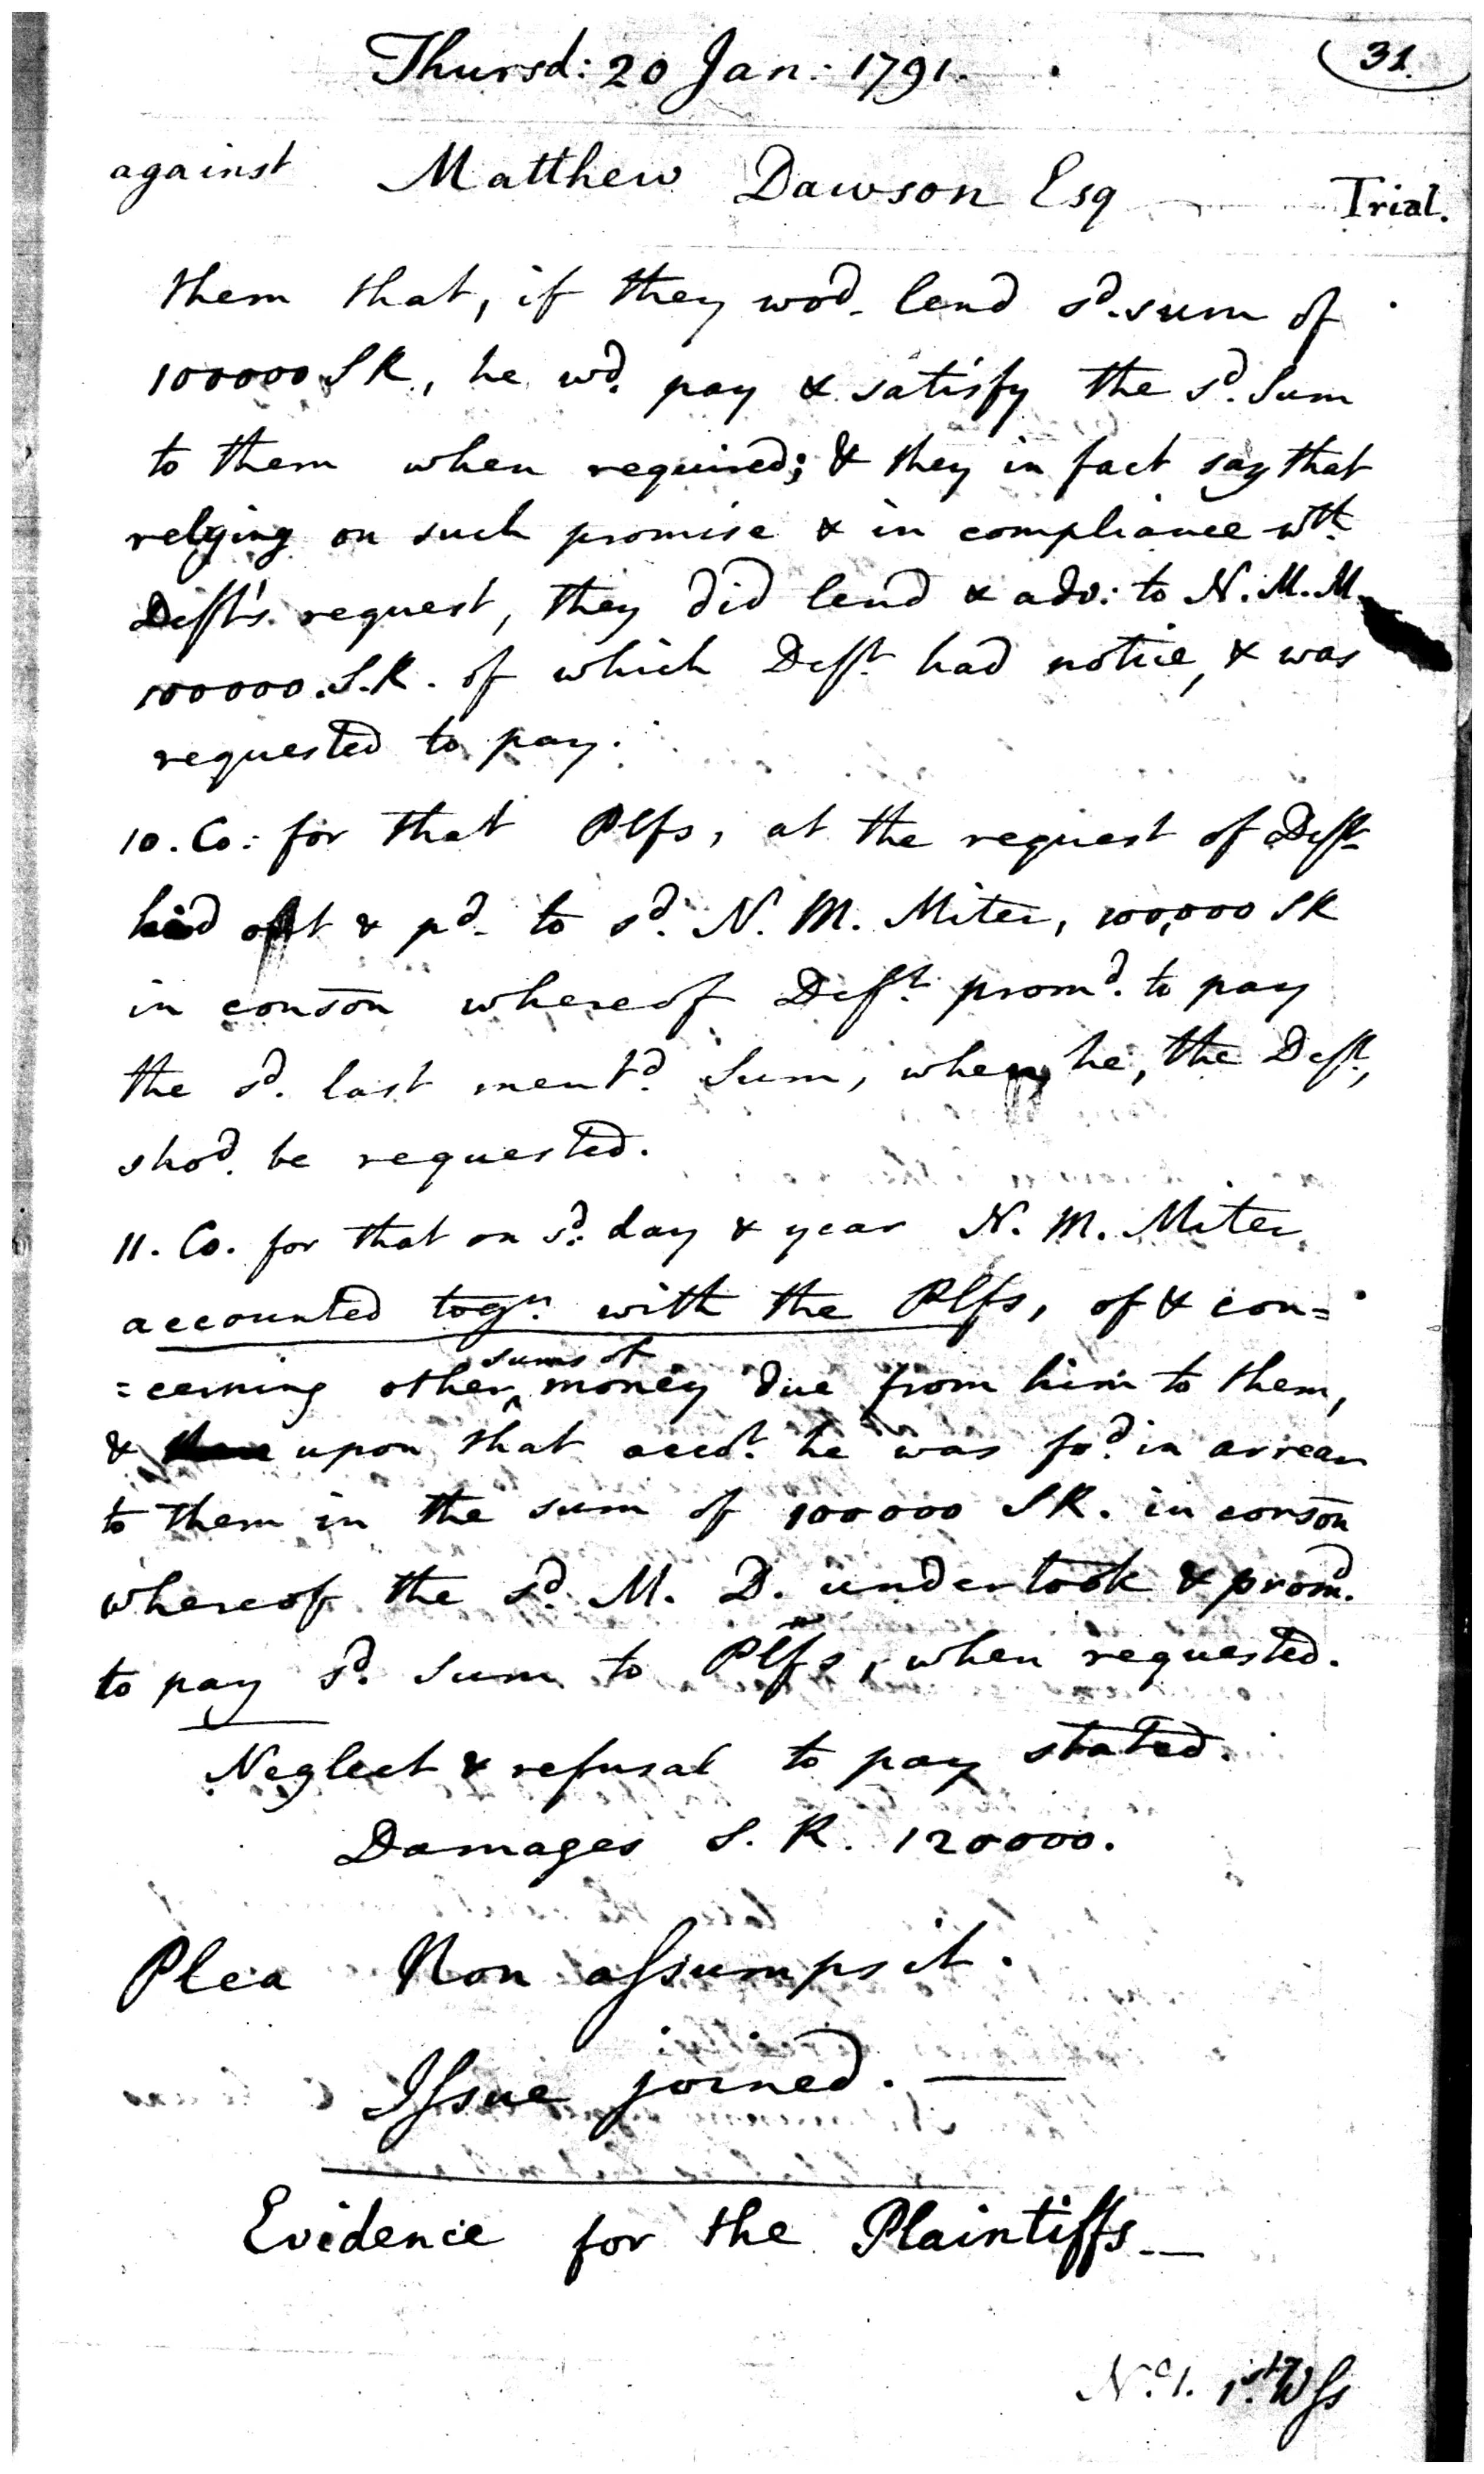 Thursd: 20 Jan: 1791.
31.
against Matthew Dawson Esq
Trial.
them that, if they wod. lend sd. sum of
100000 SR, he wd. pay & satisfy the sd. Sum
to them when required; & they in fact say that
relying on such promise & in compliance wth.
Deft's request, they did lend & adv: to N. M. M.
100000. S.R. of which Deft. had notice, & was
requested to pay.
10. Co: for that Plfs, at the request of Deft
laid out & pd. to sd. N. M. Miter, 100,000 SR
in conson whereof Deft. promd. to pay
the sd. last mentd. Sum, when he, the Deft,
shod. be requested.
11. Co. for that on sd. day & year N. M. Miter
accounted togr. with the Plfs, of & con=
=cerning other sums of money due from him to them,
& upon that acct. he was fod. in arrear
to them in the sum of 100000 SR. in conson
whereof the sd. M. D. undertook & promd.
to pay sd. Sum to Plfs, when requested.
Neglect & refusal to pay stated.
Damages S. R. 120000.
Plea Non assumpsit.
Issue joined. —
Evidence for the Plaintiffs —
No. 1. 1st. Wss